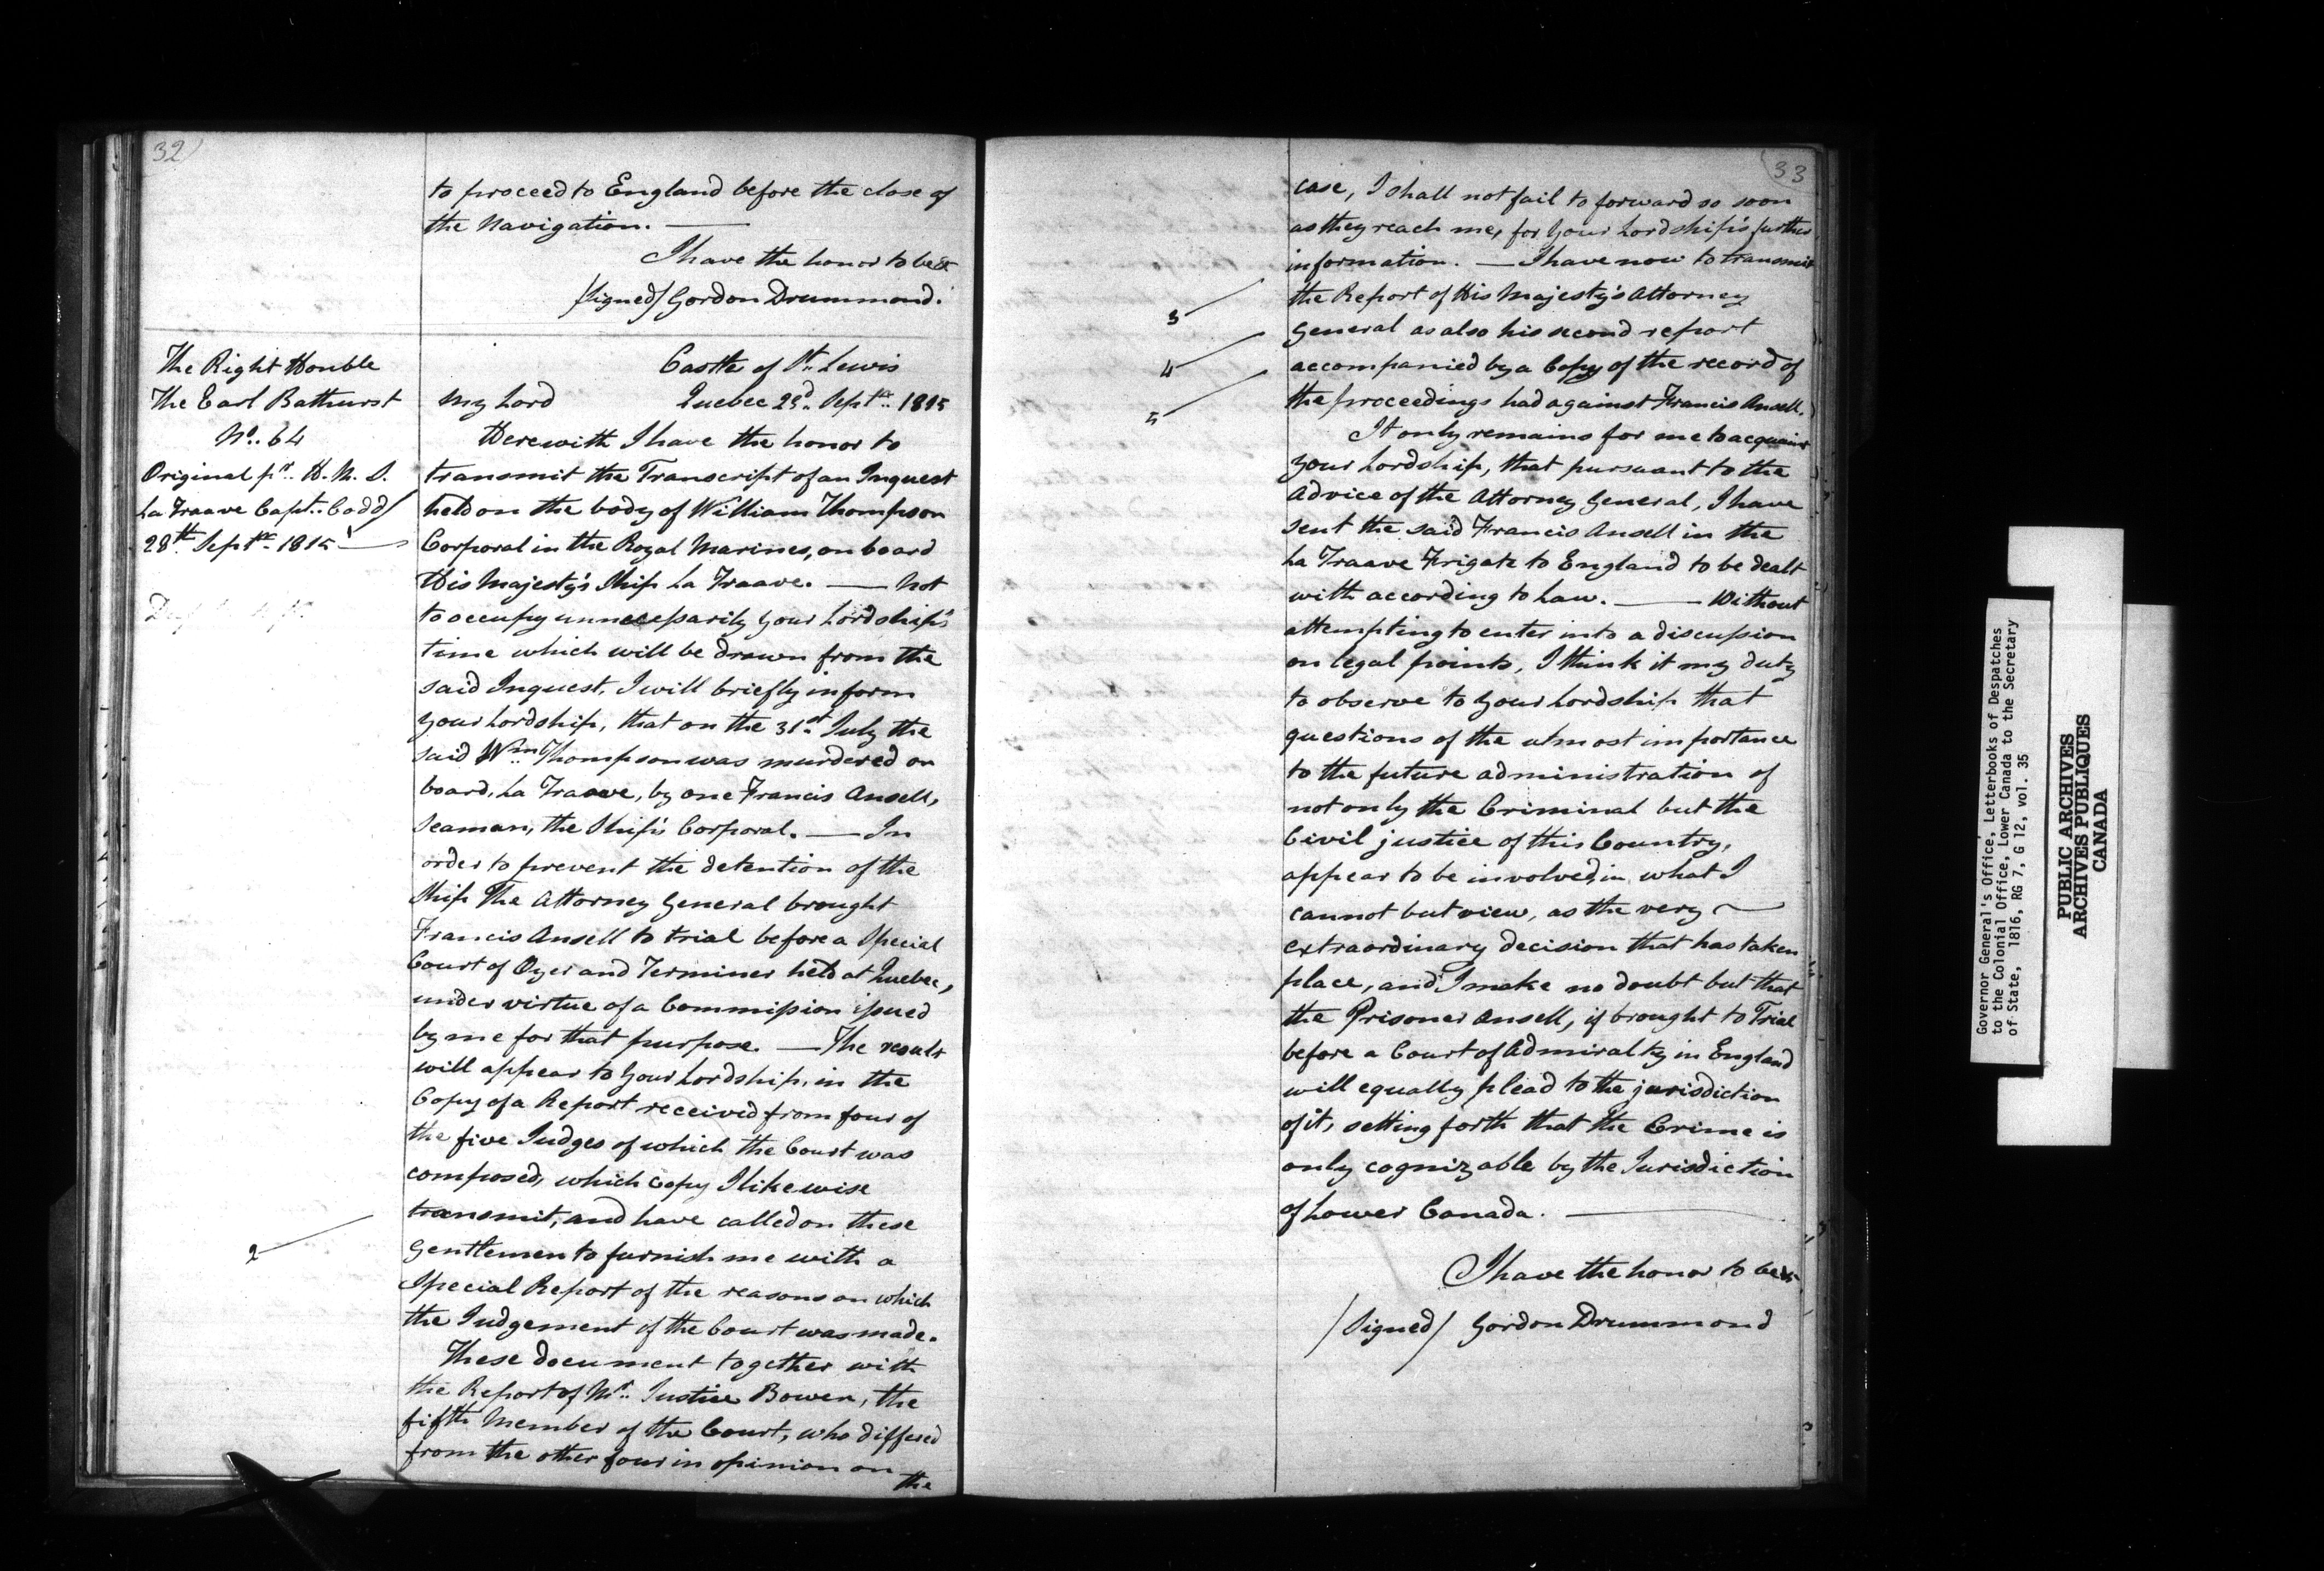 32
to proceed to England before the close of
the Navigation. —
I have the honor to be &
/Signed/ Gordon Drummond.
The Right Honble
The Earl Bathurst
No. 64
Original pr. H. M. S.
La Traave Capt. Codd/
28th Septr. 1815 —
Castle of St. Lewis
My Lord Quebec 23d. Septr. 1815
Herewith I have the honor to
transmit the Transcript of an Inquest
held on the body of William Thompson
Corporal in the Royal Marines, on board
His Majesty's Ship La Traave. — Not
to occupy unnecessarily Your Lordship's
time which will be drawn from the
said Inquest, I will briefly inform
Your Lordship, that on the 31st. July the
said Wm. Thompson was murdered on
board, La Traave, by one Francis Ansell,
Seaman, the Ship's Corporal. — In
order to prevent the detention of the
Ship The Attorney General brought
Francis Ansell to trial before a Special
Court of Oyer and Terminer held at Quebec,
under virtue of a Commission issued
by me for that purpose. — The result
will appear to Your Lordship, in the
Copy of a Report received from four of
the five Judges of which the Court was
composed, which copy I likewise
transmit, and have called on these
2
Gentlemen to furnish me with a
Special Report of the reasons on which
the Judgement of the Court was made.
These document together with
the Report of Mr. Justice Bowen, the
fifth Member of the Court, who differed
from the other four in opinion on
the
33
case, I shall not fail to forward so soon
as they reach me, for Your Lordship's further
information. — I have now to transmit
3
the Report of His Majesty's Attorney
General as also his second report
4
accompanied by a Copy of the record of
5
the proceedings had against Francis Ansell.
It only remains for me to acquaint
Your Lordship, that pursuant to the
Advice of the Attorney General, I have
sent the said Francis Ansell in the
La Traave Frigate to England to be dealt
with according to Law. — Without
attempting to enter into a discussion
on legal points, I think it my duty
to observe to Your Lordship that
questions of the utmost importance
to the future administration of
not only the Criminal but the
Civil justice of this Country,
appear to be involved, in what I
cannot but view, as the very —
extraordinary decision that has taken
place, and I make no doubt but that
the Prisoner Ansell, if brought to Trial
before a Court of Admiralty in England
will equally plead to the jurisdiction
of it, setting forth that the Crime is
only cognizable by the Jurisdiction
of Lower Canada. —
I have the honor to be &
/Signed/ Gordon Drummond
Governor General's Office, Letterbooks of Despatches
to the Colonial Office, Lower Canada to the Secretary
of State, 1816, RG 7, G 12, vol. 35
PUBLIC ARCHIVES
ARCHIVES PUBLIQUES
CANADA